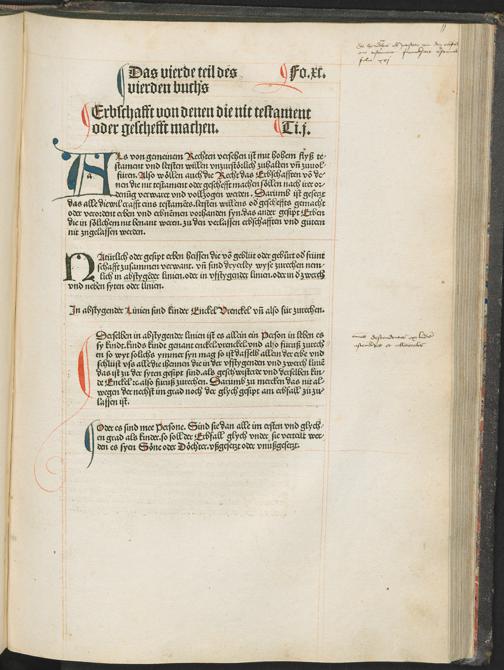 Das vierde teil des
vierden buchs
Fo.xc.
Erbschafft von denen die nit testament
oder geschefft machen.
Ti.j.
Als von gemeinem Rechten versehen ist mit hohem flyß te-
stament vnd letsten willen vnzustörlich zuhalten vñ zuuol-
füren. Also wöllen auch die Recht das Erbschafften vō de-
nen die nit testament oder geschefft machen söllen nach irer or-
denūg verwart vnd vollzogen werden. Darumb ist gesetzt
das alle die wil crafft eins testamēts. letsten willens od geschefts gemacht
oder verordent erben vnd erbnemen vorhanden syn. das ander gesipt Erben
die in söllichem nit benant weren. zu den verlassen erbschafften vnd gütern
nit zugelassen werden.
Natürlich oder gesipt erben heissen die vō geblüt oder gebürt od fründ
schafft zusammen verwant. vñ sind dryerley wyse zurechen nem-
lich in abstygēder linien. oder in vfstygender linien. oder in d zwerch
vnd neben syten oder linien.
In abstygender Linien sind kinder Enckel Vrenckel vñ also für zurechen.
Derselben in abstygender linien ist es allein ein Person in leben es
sy kindt. kinds kinde genant enckel. vrenckel vnd also füruß zurech
en so wyt solichs ymmer syn mag so ist dasselb allein der erbe vnd
schlüst vß alle die ihennen die in der vfstygenden vnd zwerch liniē
das ist zu der syten gesipt sind. als geschwisterde vnd derselben kin-
de Enckel ec also füruß zurechen. Darumb zu mercken das nit al-
wegen der nechst im grad noch der glych gesipt am erbfall zu zu-
lassen ist.
Oder es sind mer Persone. Sind sie dan alle im ersten vnd glych-
en grad als kinder. so soll der Erbfall glych vnder sie verteilt wer-
den es syen Söne oder Döchter. vßgesetzt oder vnußgesetzt.